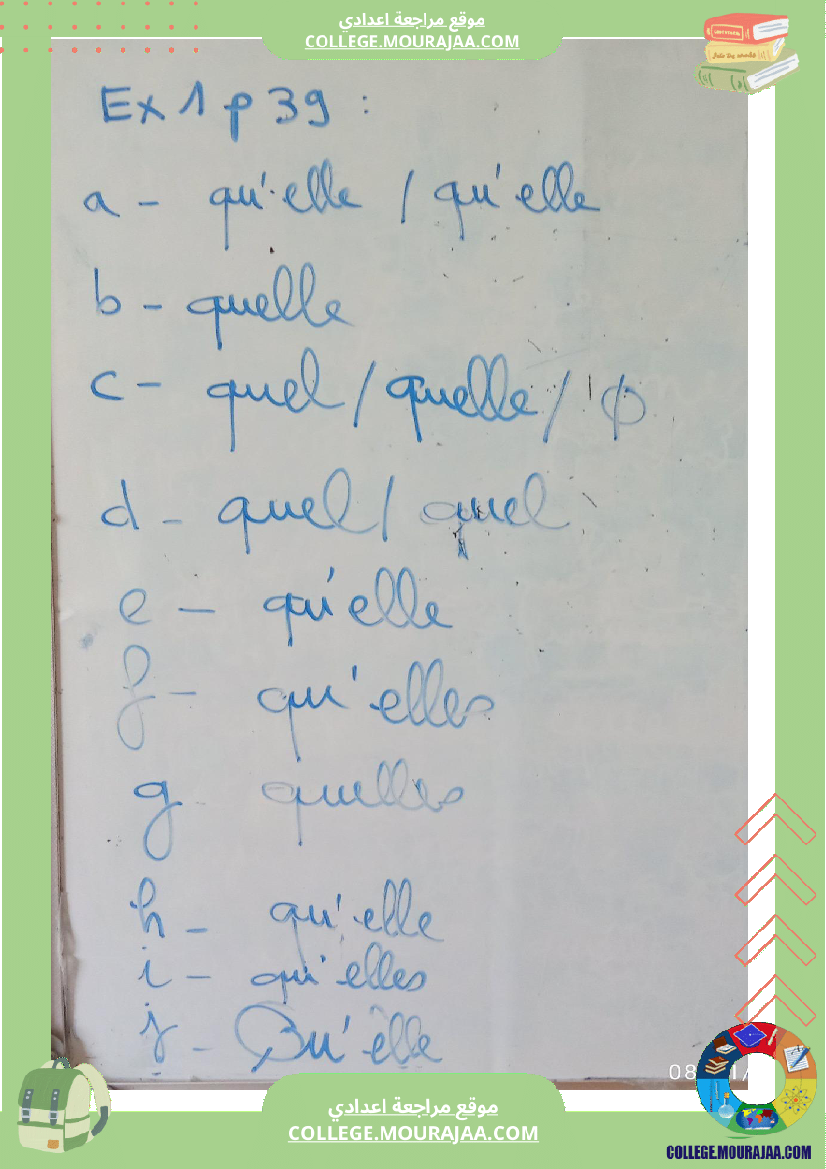 موقع مراجعة اعدادي
COLLEGE.MOURAJAA.COM
Ex 1 p 39 :
a - qu'elle / qu'elle
b - quelle
c - quel / quelle / φ
d - quel / quel
e - qu'elle
f - qu'elles
g quelles
h - qu'elle
i - qu'elles
j - Qu'elle
08
موقع مراجعة اعدادي
COLLEGE.MOURAJAA.COM
COLLEGE.MOURAJAA.COM